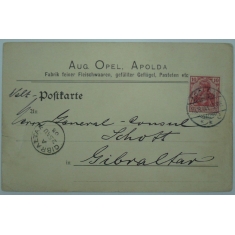 AUG. OPEL, APOLDA
Fabrik feiner Fleischwaren, gefüllter Geflügel, Pasteten etc
Welt-Postkarte
An
Herrn General-Consul
Schott
in Gibraltar
GIBRALTAR